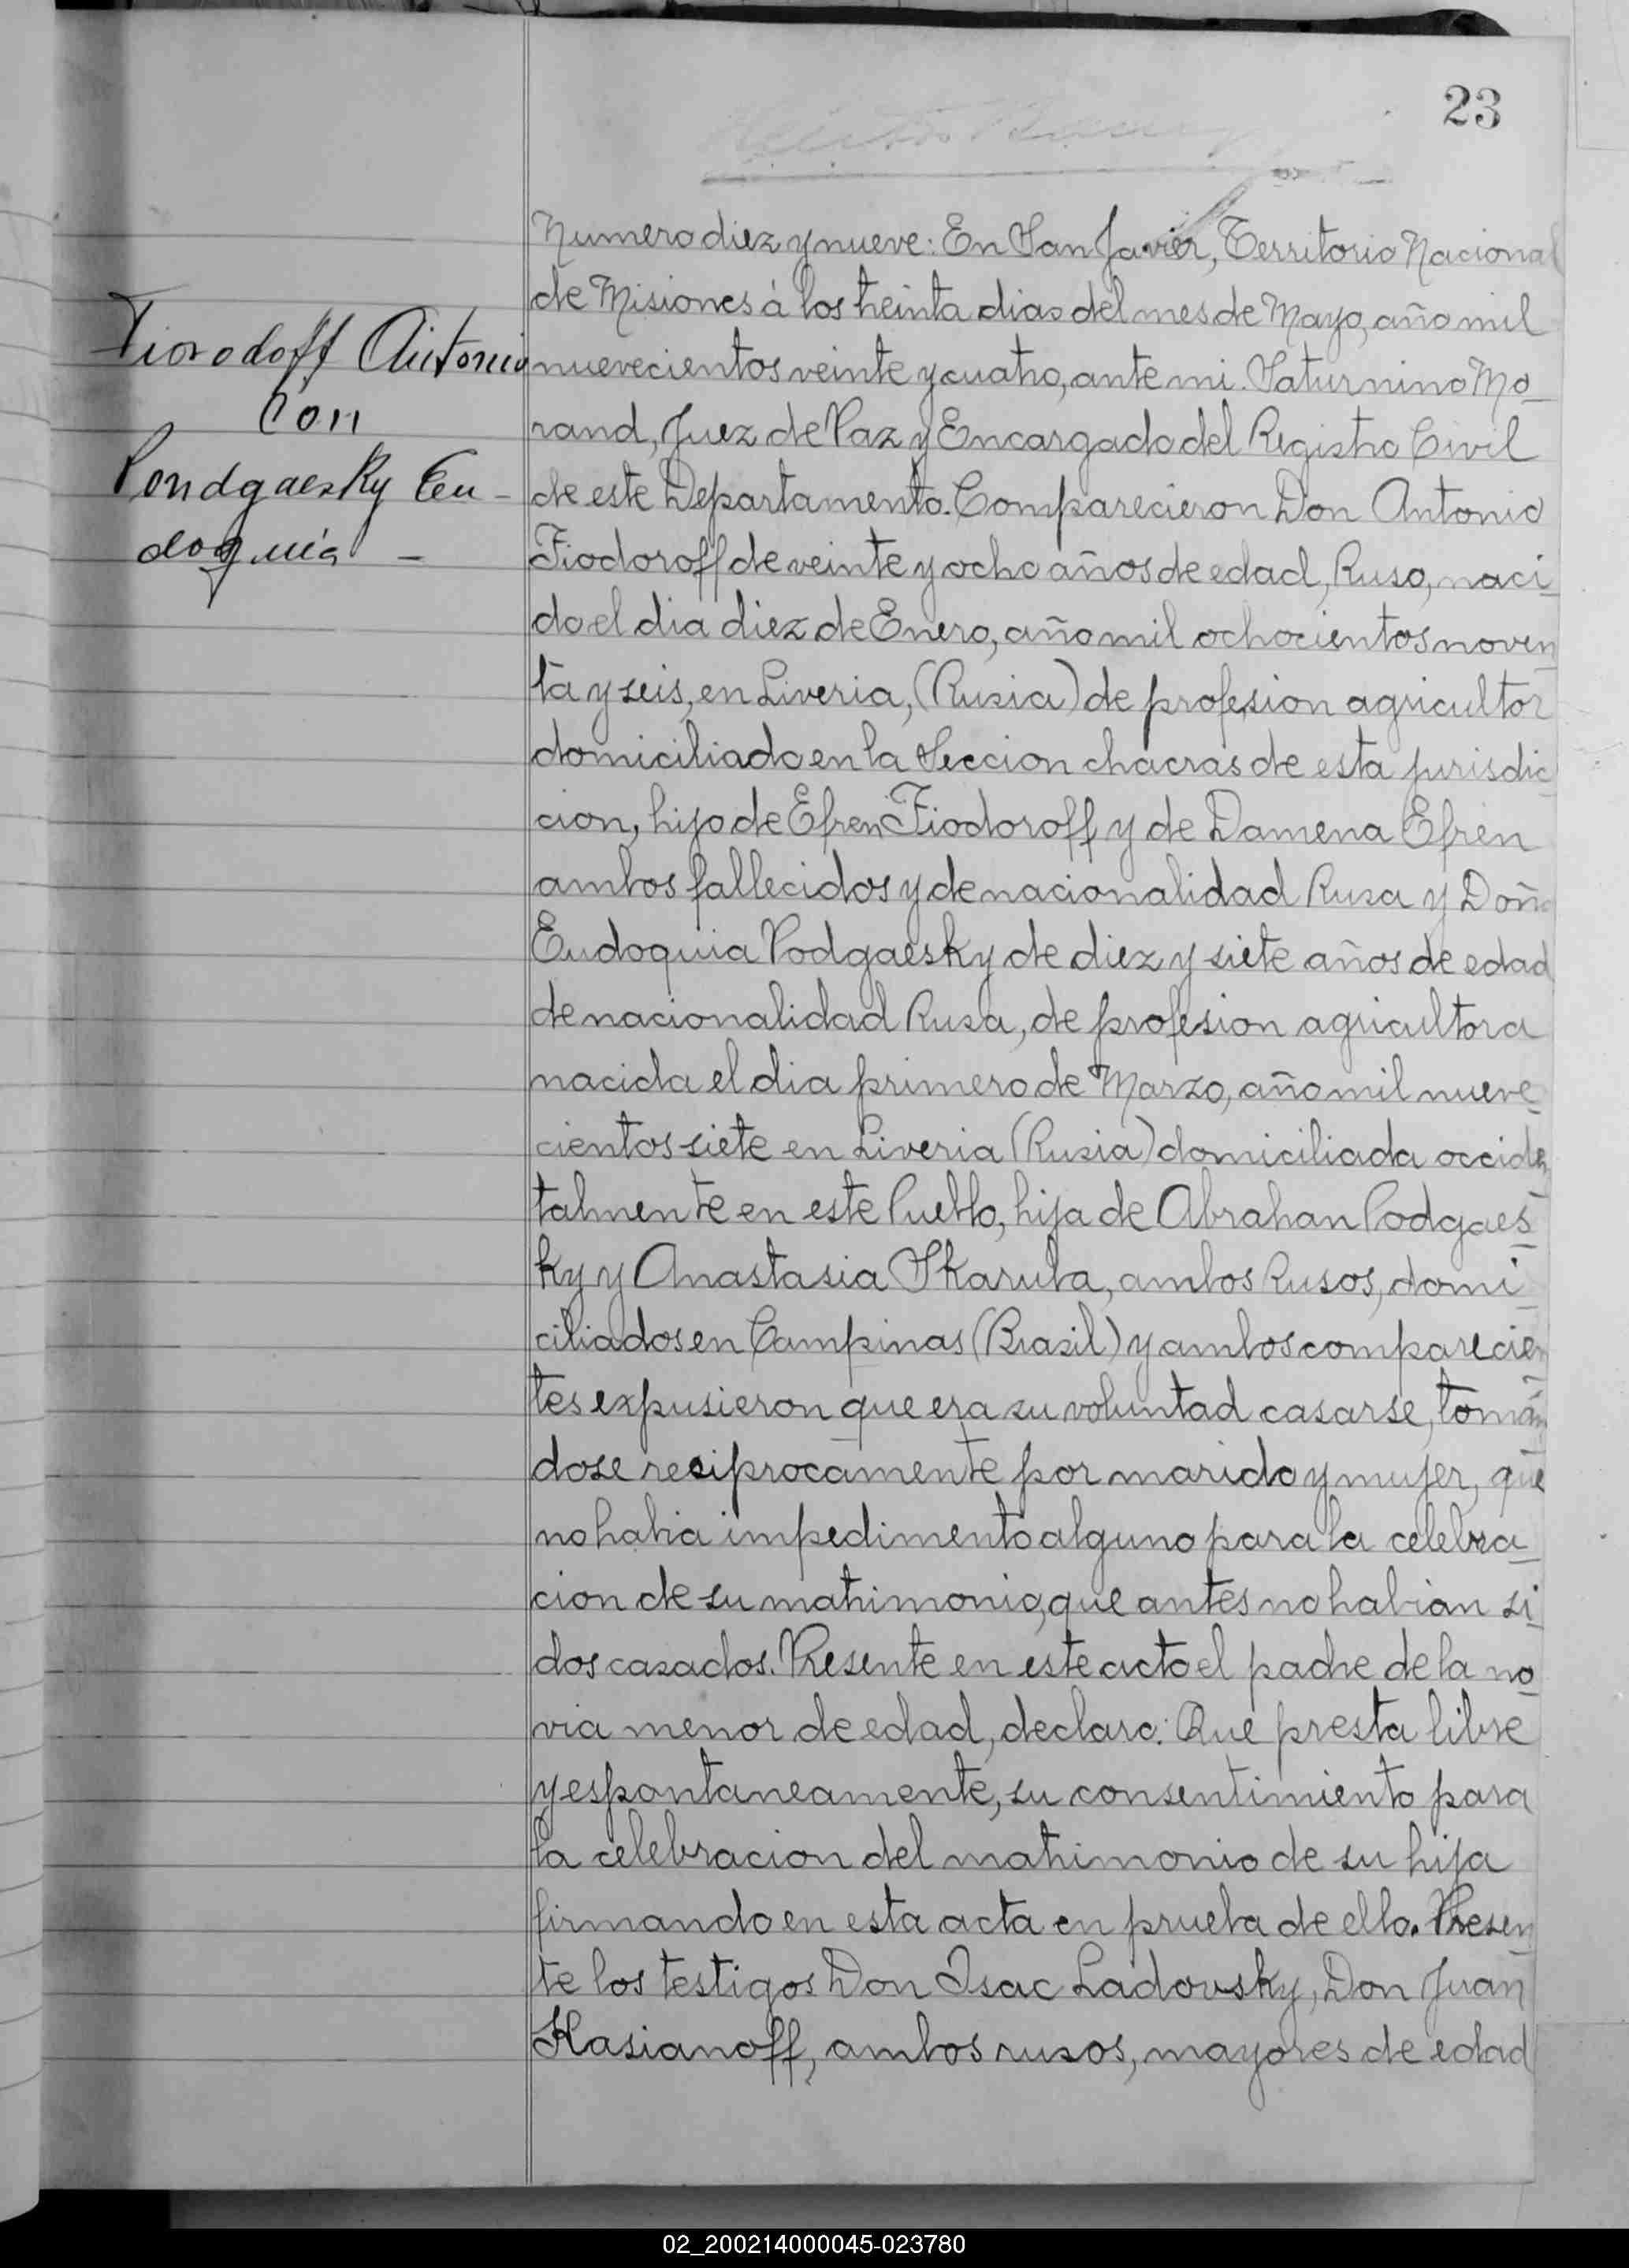 23
Fiorodoff Antonio
con
Pondgaesky Eu-
doquia -
Numero diez y nueve: En San Javier, Territorio Nacional
de Misiones á los treinta dias del mes de Mayo, año mil
nuevecientos veinte y cuatro, ante mi. Saturnino Mo-
rand, Juez de Paz y Encargado del Registro Civil
de este Departamento. Comparecieron Don Antonio
Fiodoroff de veinte y ocho años de edad, Ruso, naci-
do el dia diez de Enero, año mil ochocientos noven-
ta y seis, en Liveria, (Rusia) de profesion agricultor
domiciliado en la Seccion chacras de esta jurisdic-
cion, hijo de Efren Fiodoroff y de Damena Efren
ambos fallecidos y de nacionalidad Rusa y Doña
Eudoquia Podgaesky de diez y siete años de edad
de nacionalidad Rusa, de profesion agricultora
nacida el dia primero de Marzo, año mil nueve-
cientos siete en Liveria (Rusia) domiciliada occiden-
talmente en este Pueblo, hija de Abrahan Podgaes-
ky y Anastasia Skaruba, ambos Rusos, domi-
ciliados en Campinas (Brasil) y ambos comparecien-
tes expusieron que era su voluntad casarse, toman-
dose resiprocamente por marido y mujer, que
no habia impedimento alguno para la celebra-
cion de su matrimonio, que antes no habian si-
dos casados. Presente en este acto el padre de la no-
via menor de edad, declaro: Que presta libre
y espontaneamente, su consentimiento para
la celebracion del matrimonio de su hija
firmando en esta acta en prueba de ello. Presen-
te los testigos Don Isac Ladovsky, Don Juan
Kasianoff, ambos rusos, mayores de edad
02_200214000045-023780